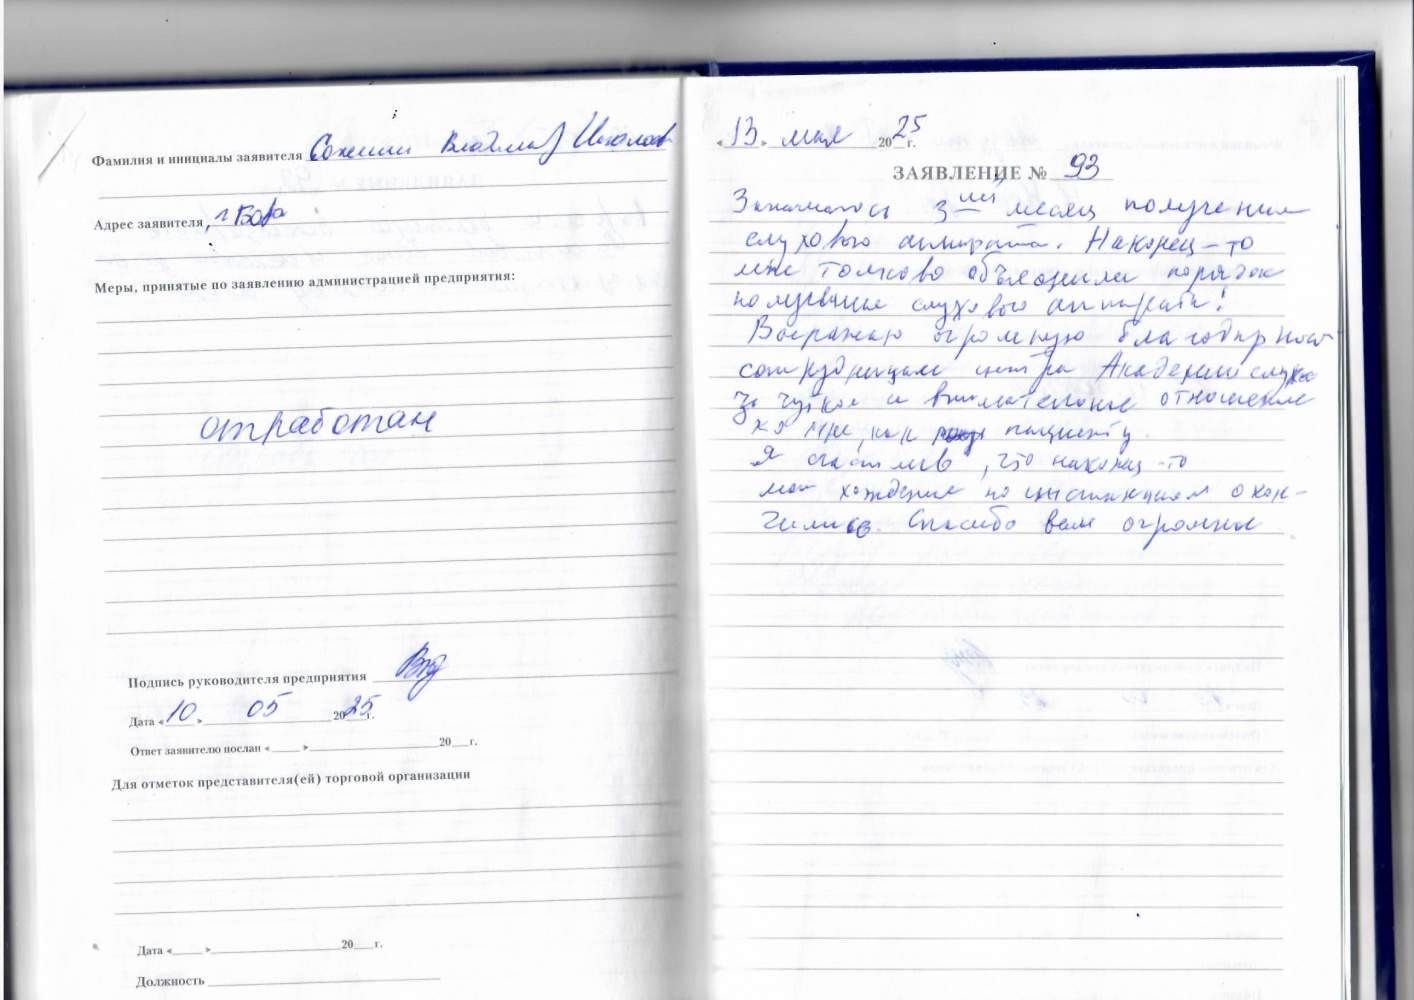 Фамилия и инициалы заявителя Владимир
Адрес заявителя, г Бор
Меры, принятые по заявлению администрацией предприятия:
отработан
Подпись руководителя предприятия
Дата «10» 05 2025 г.
Ответ заявителю послан «___» 20__ г.
Для отметок представителя(ей) торговой организации
Дата «___» 20__ г.
Должность
«13» мая 2025 г.
ЗАЯВЛЕНИЕ № 93
Занимаюсь 3-ий месяц получением
слухового аппарата. Наконец-то
мне толково объяснили порядок
получения слухового аппарата!
Выражаю огромную благодарность
сотрудницам центра Академии слуха
за чуткое и внимательное отношение
ко мне, как пациенту.
Я счастлив, что наконец-то
мои хождения по инстанциям окон-
чились. Спасибо вам огромное